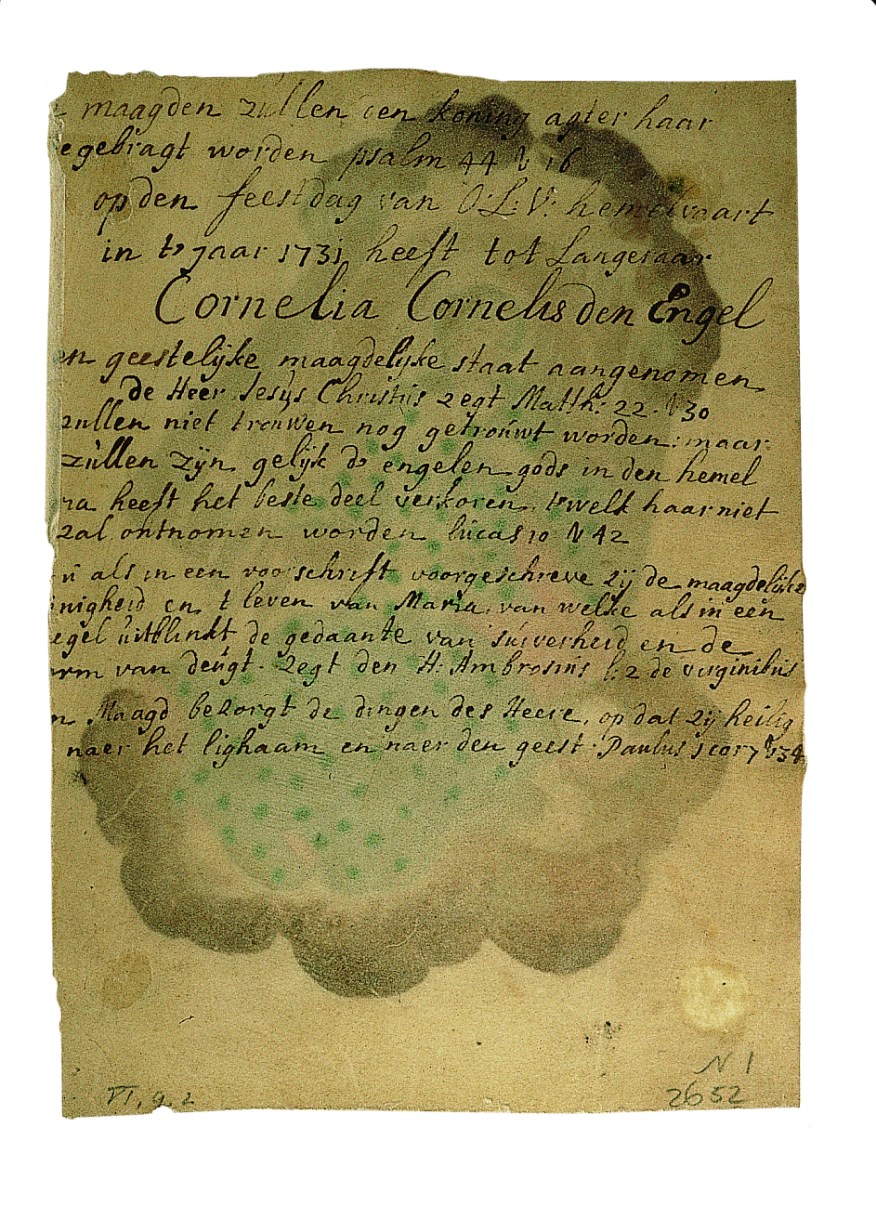 maagden zullen den koning agter haar
egebragt worden psalm 44 v 16
op den feestdag van O:L:V: hemelvaart
in t jaar 1731 heeft tot Langeraar
Cornelia Cornelis den Engel
en geestelijke maagdelijke staat aangenomen
de Heer Jesus Christus zegt Matth: 22. v 30
zullen niet trouwen nog getrouwt worden: maar
zullen zijn gelijk de engelen gods in den hemel
ria heeft het beste deel verkoren, t welk haar niet
zal ontnomen worden lucas 10 v 42
u als in een voorschrift voorgeschreve zij de maagdelijke
inigheid en t leven van Maria, van welke als in een
egel uitblinkt de gedaante van suiverheid en de
orm van deugt. Zegt den H: Ambrosius l: 2 de virginibus
n Maagd bezorgt de dingen des Heere, op dat zij heilig
naer het lighaam en naer den geest. Paulus 1 cor 7 v 34
N 1
VI, 9, 2 2652